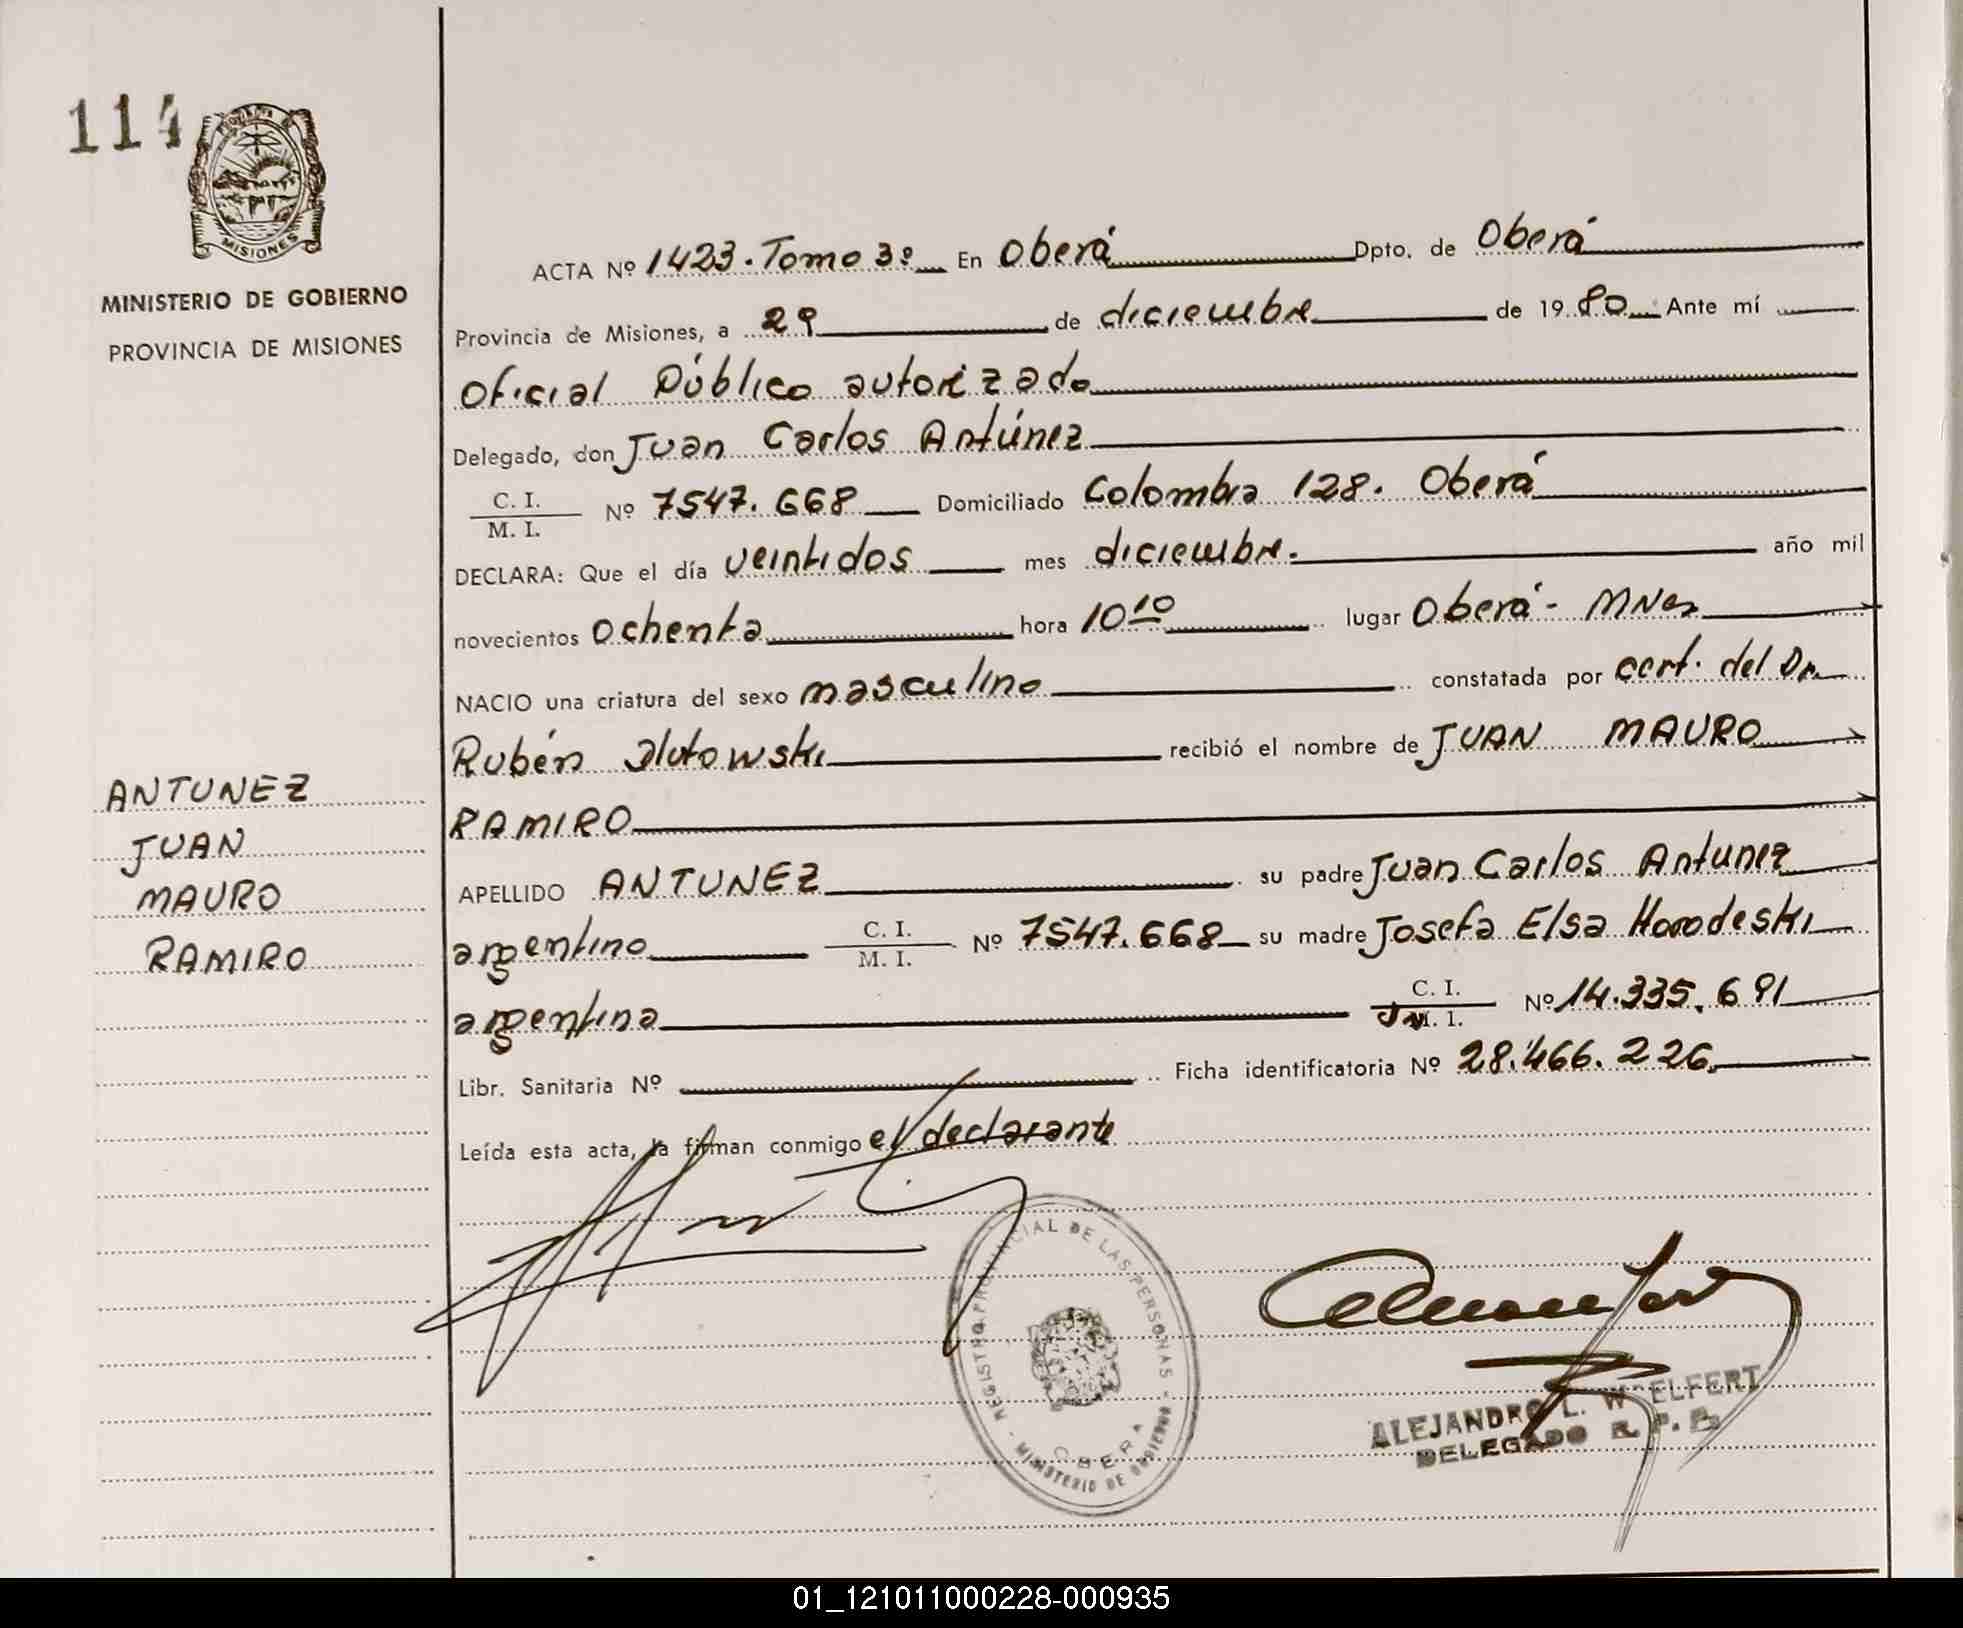 114
MISIONES
MINISTERIO DE GOBIERNO
PROVINCIA DE MISIONES
ACTA Nº 1423. Tomo 3º En Oberá Dpto. de Oberá
Provincia de Misiones, a 29 de diciembre de 1980 Ante mí
Oficial Público autorizado
Delegado, don Juan Carlos Antúnez
C. I.
M. I.
Nº 7547.668 Domiciliado Colombia 128. Oberá
DECLARA: Que el día veintidos mes diciembre. año mil
novecientos ochenta hora 10 10 lugar Oberá - Mnes
NACIO una criatura del sexo masculino constatada por cert. del Dr.
Rubén recibió el nombre de JUAN MAURO
RAMIRO
ANTUNEZ
JUAN
MAURO
RAMIRO
APELLIDO ANTUNEZ su padre Juan Carlos Antunez
argentino C. I. M. I. Nº 7547.668 su madre Josefa Elsa Horodeski
argentina C. I. M. I. Nº 14.335.691
Libr. Sanitaria Nº Ficha identificatoria Nº 28.466.226
Leída esta acta, la firman conmigo el declarante
REGISTRO PROVINCIAL DE LAS PERSONAS - MINISTERIO DE GOBIERNO -
OBERA
ALEJANDRO L.
DELEGADO R. P. P.
01_121011000228-000935